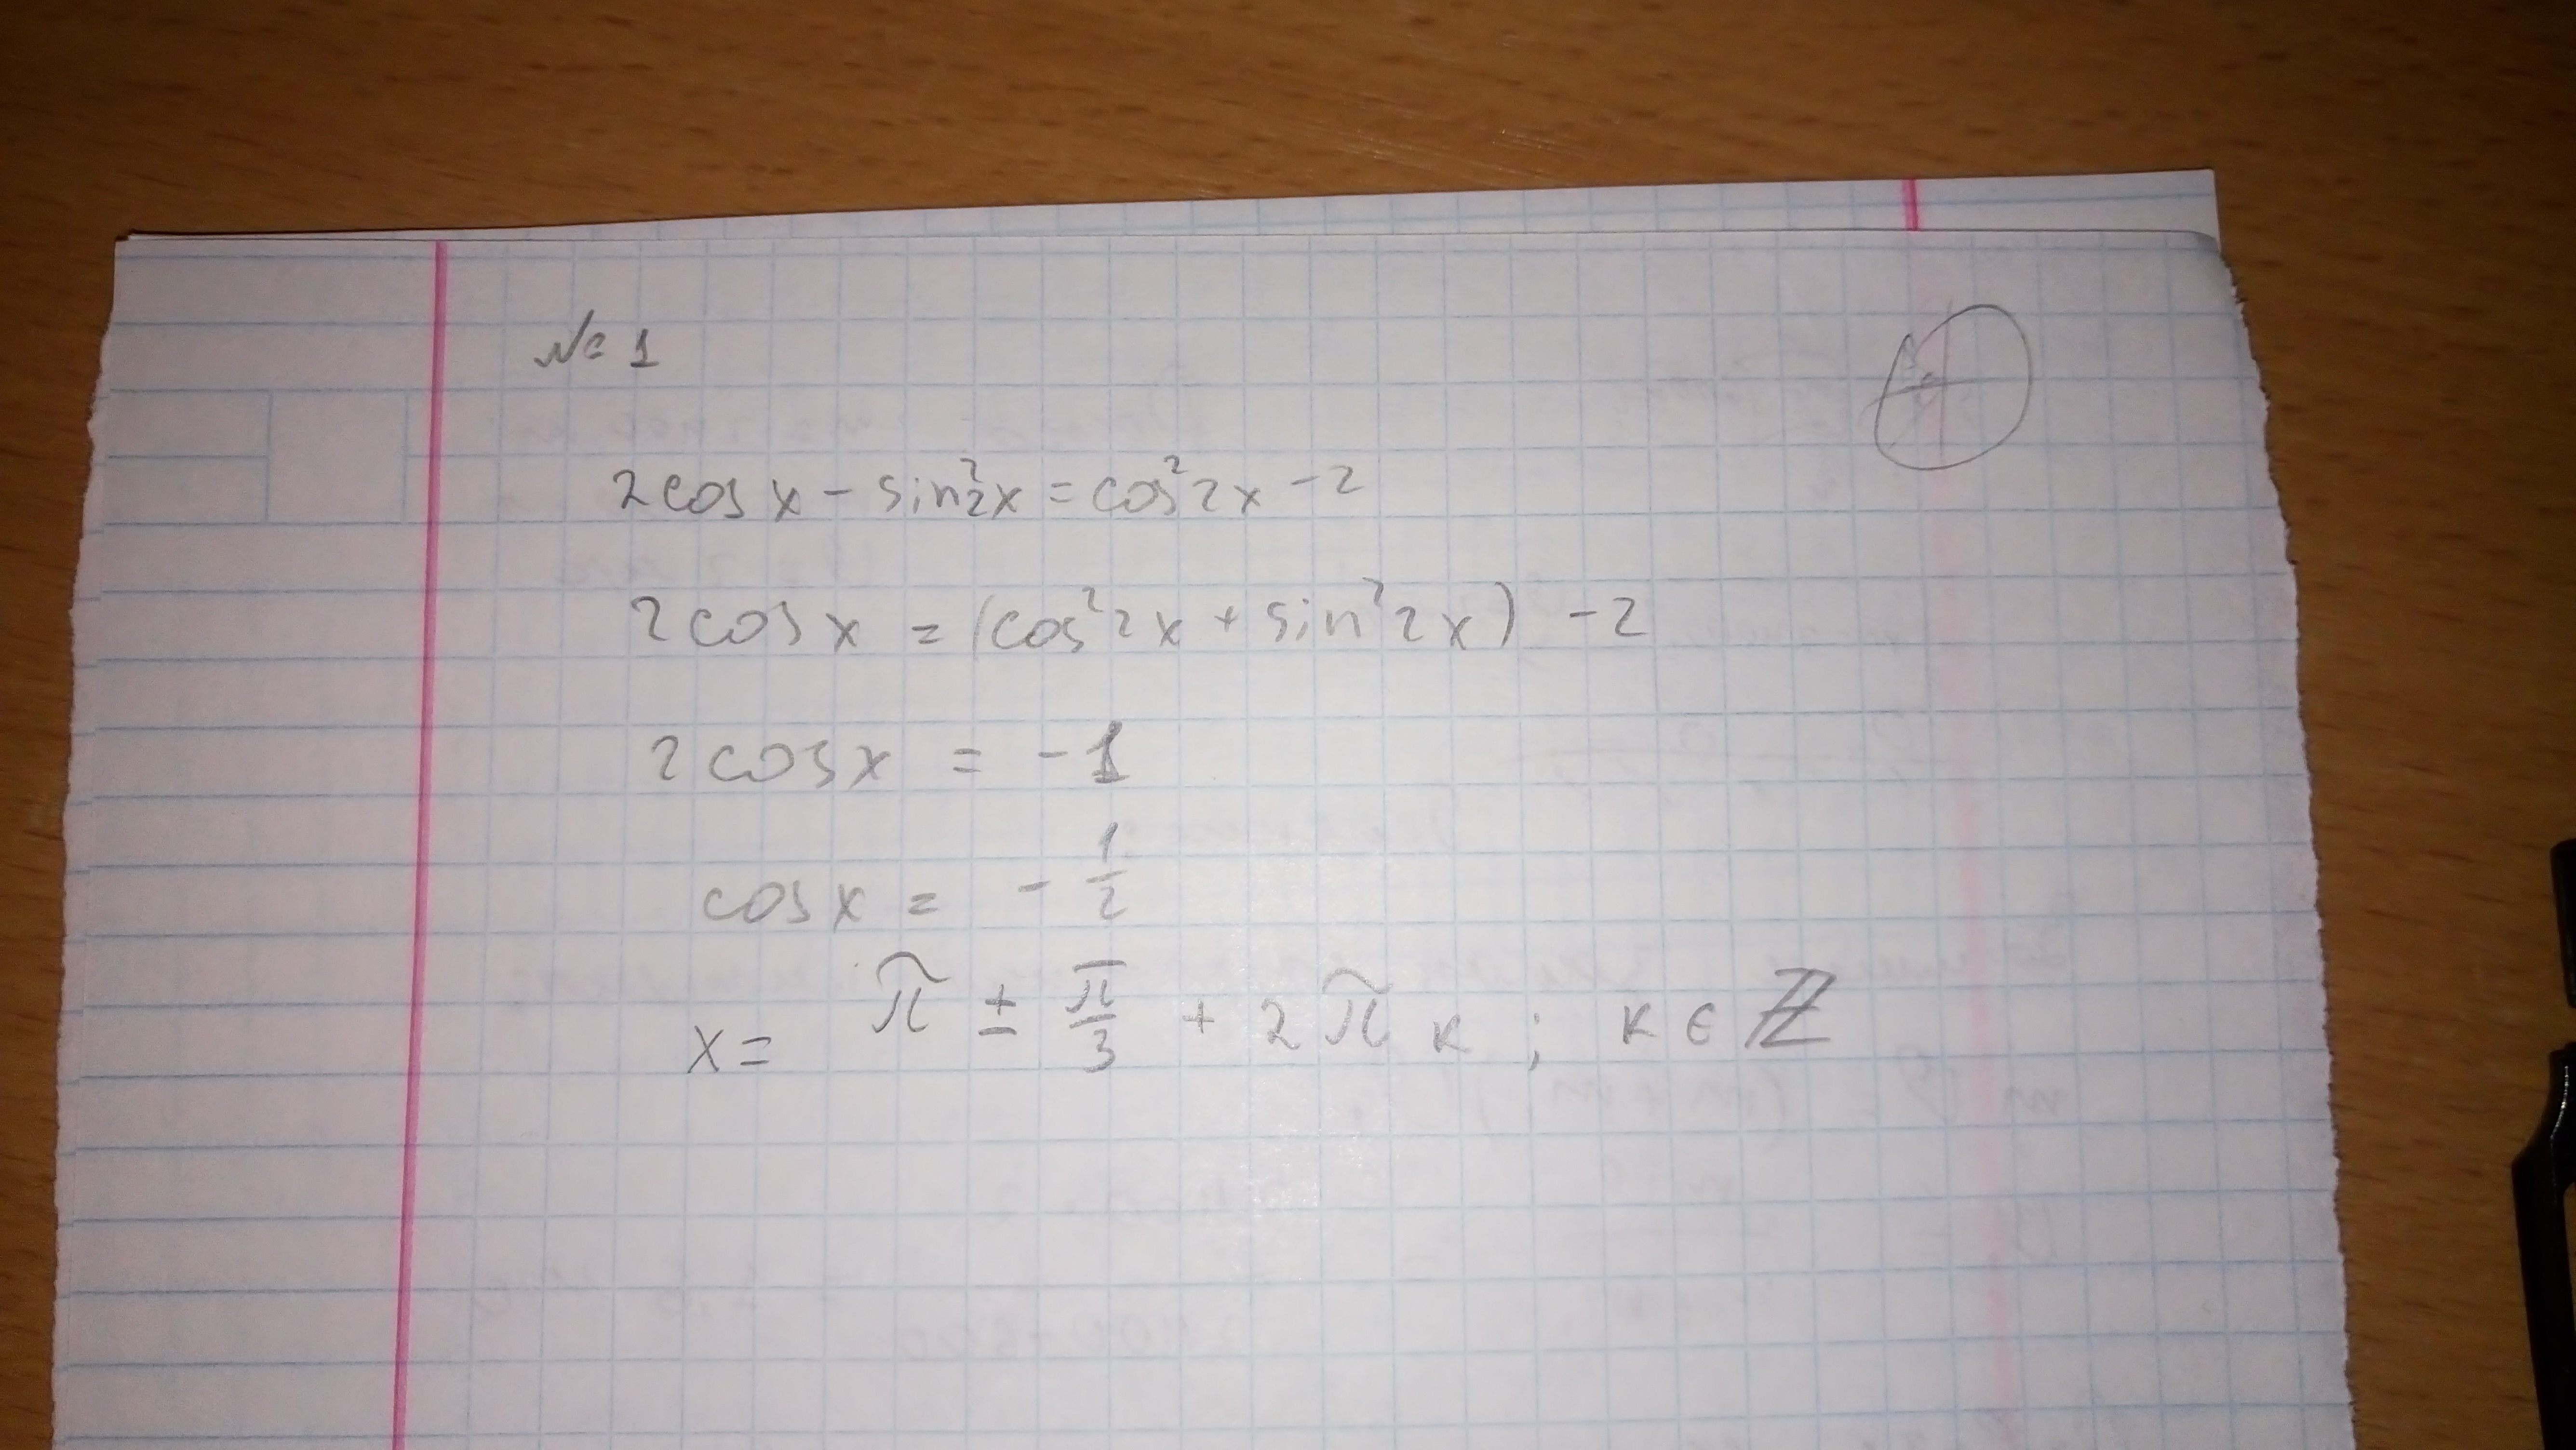 № 1
2cos x - sin²2x = cos²2x - 2
2cos x = (cos²2x + sin²2x) - 2
2cos x = -1
cos x = - 1/2
x = π ± π/3 + 2πк ; к ∈ ℤ